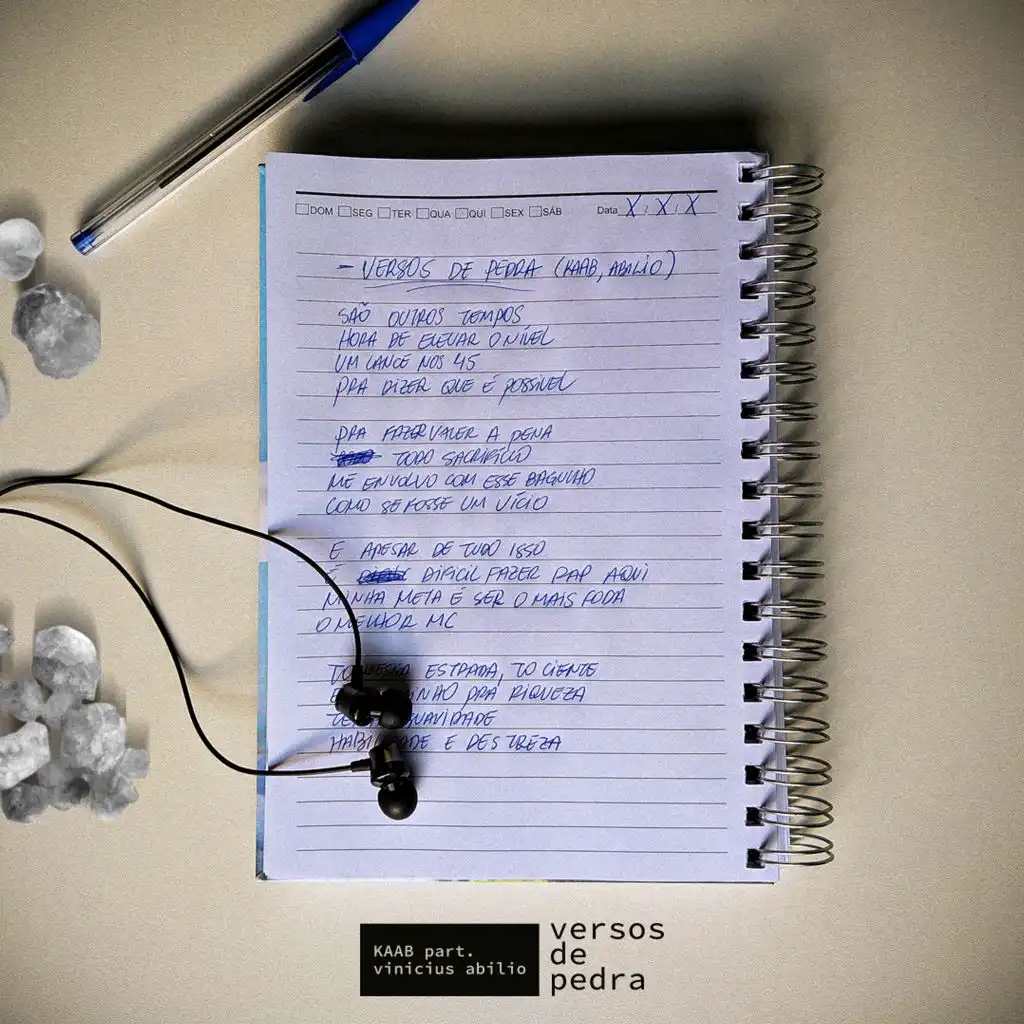 DOM SEG TER QUA QUI SEX SÁB Data X / X / X
- VERSOS DE PEDRA (KAAB, ABILIO)
SÃO OUTROS TEMPOS
HORA DE ELEVAR O NÍVEL
UM LANCE NOS 45
PRA DIZER QUE É POSSIVEL
PRA FAZER VALER A PENA
TODO SACRIFÍCIO
ME ENVOLVO COM ESSE BAGULHO
COMO SE FOSSE UM VÍCIO
E APESAR DE TUDO ISSO
É DIFICIL FAZER RAP AQUI
MINHA META É SER O MAIS FODA
O MELHOR MC
ESTRADA, TO CIENTE
PRA RIQUEZA
SUAVIDADE
E DESTREZA
KAAB part.
vinicius abilio
versos
de
pedra